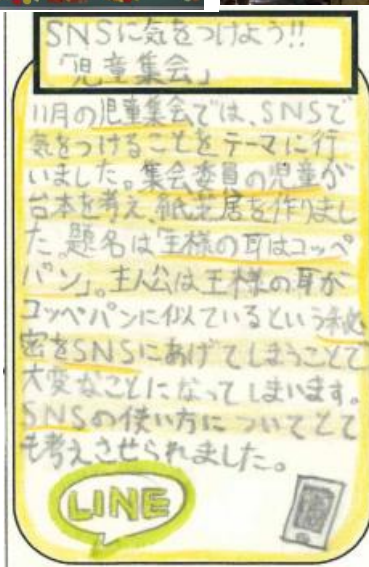 SNSに気をつけよう!!
「児童集会」
11月の児童集会では、SNSで
気をつけることをテーマに行
いました。集会委員の児童が
台本を考え、紙芝居を作りまし
た。題名は「王様の耳はコッペ
パン」。主人公は王様の耳が
コッペパンに似ているという秘
密をSNSにあげてしまうことで
大変なことになってしまいます。
SNSの使い方についてとて
も考えさせられました。
LINE